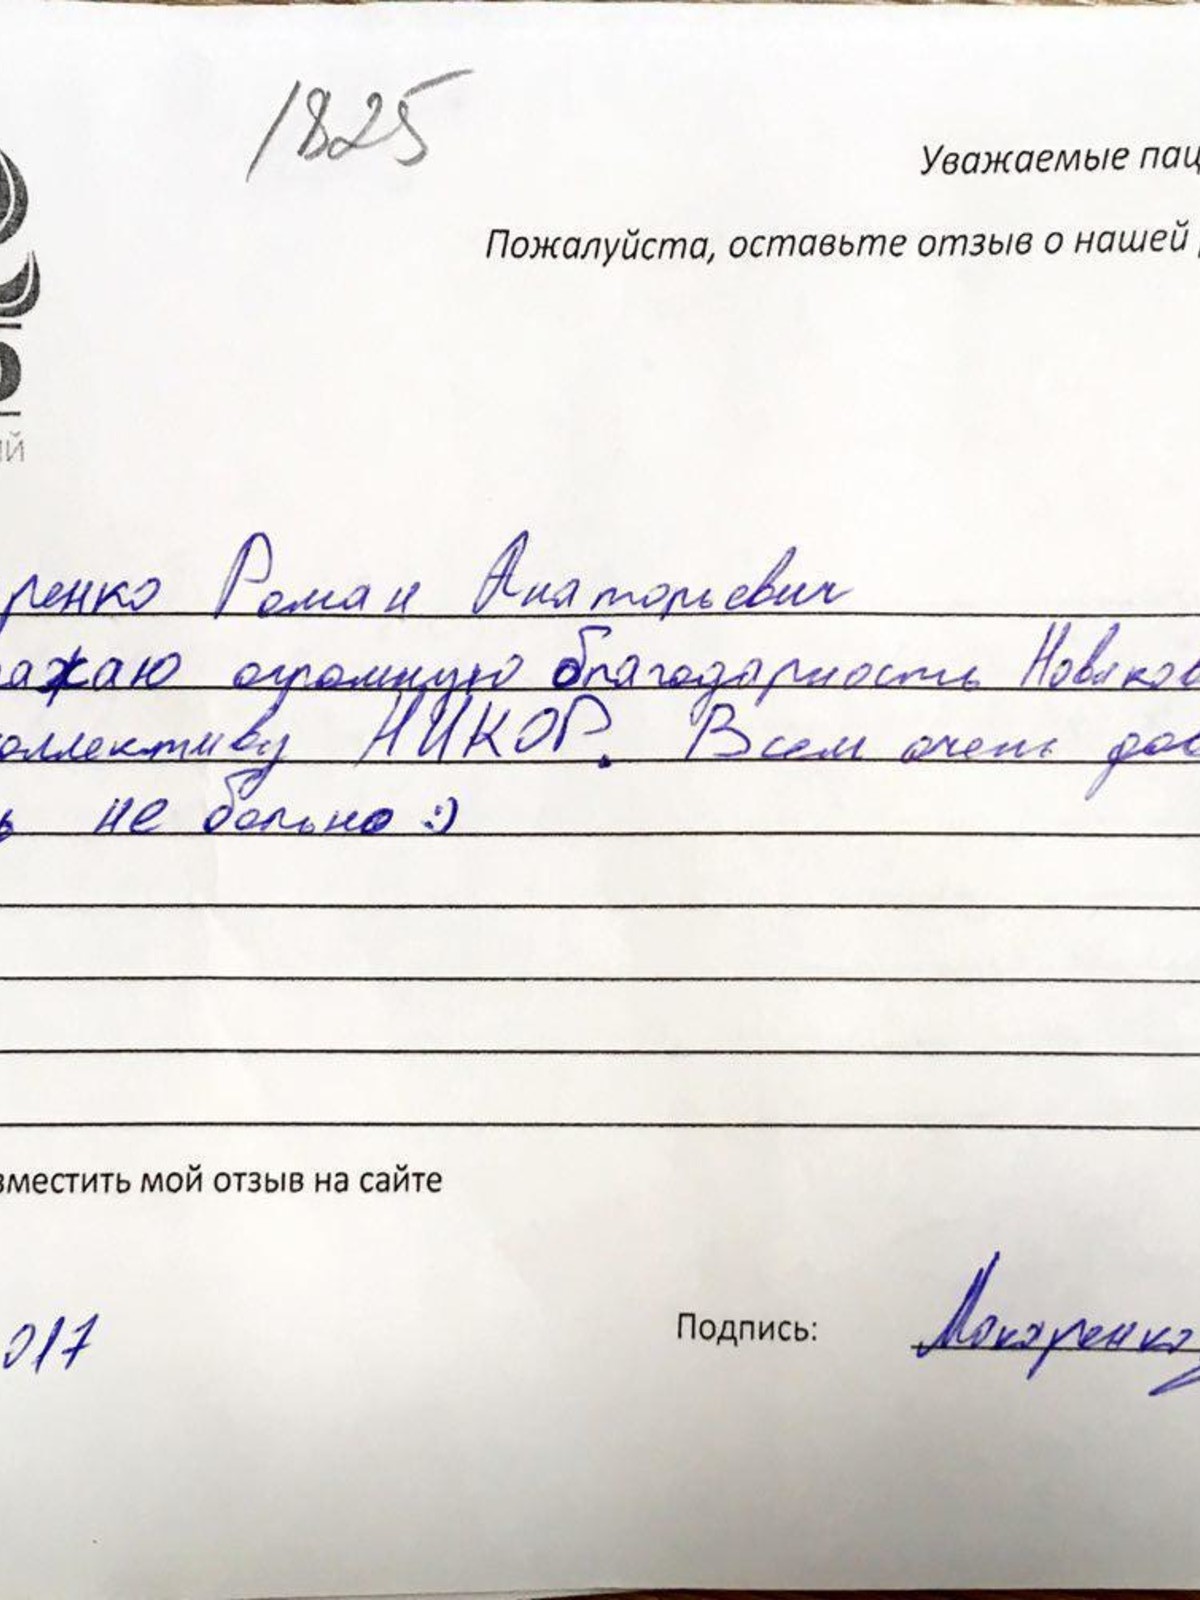 1825
Уважаемые пац
Пожалуйста, оставьте отзыв о нашей
ий
ренко Роман Анаторьевич
ажаю огромную благодарность Новиков
оллективу НИКОР. Всем очень дов
ь не больно :)
зместить мой отзыв на сайте
017
Подпись: Макаренко